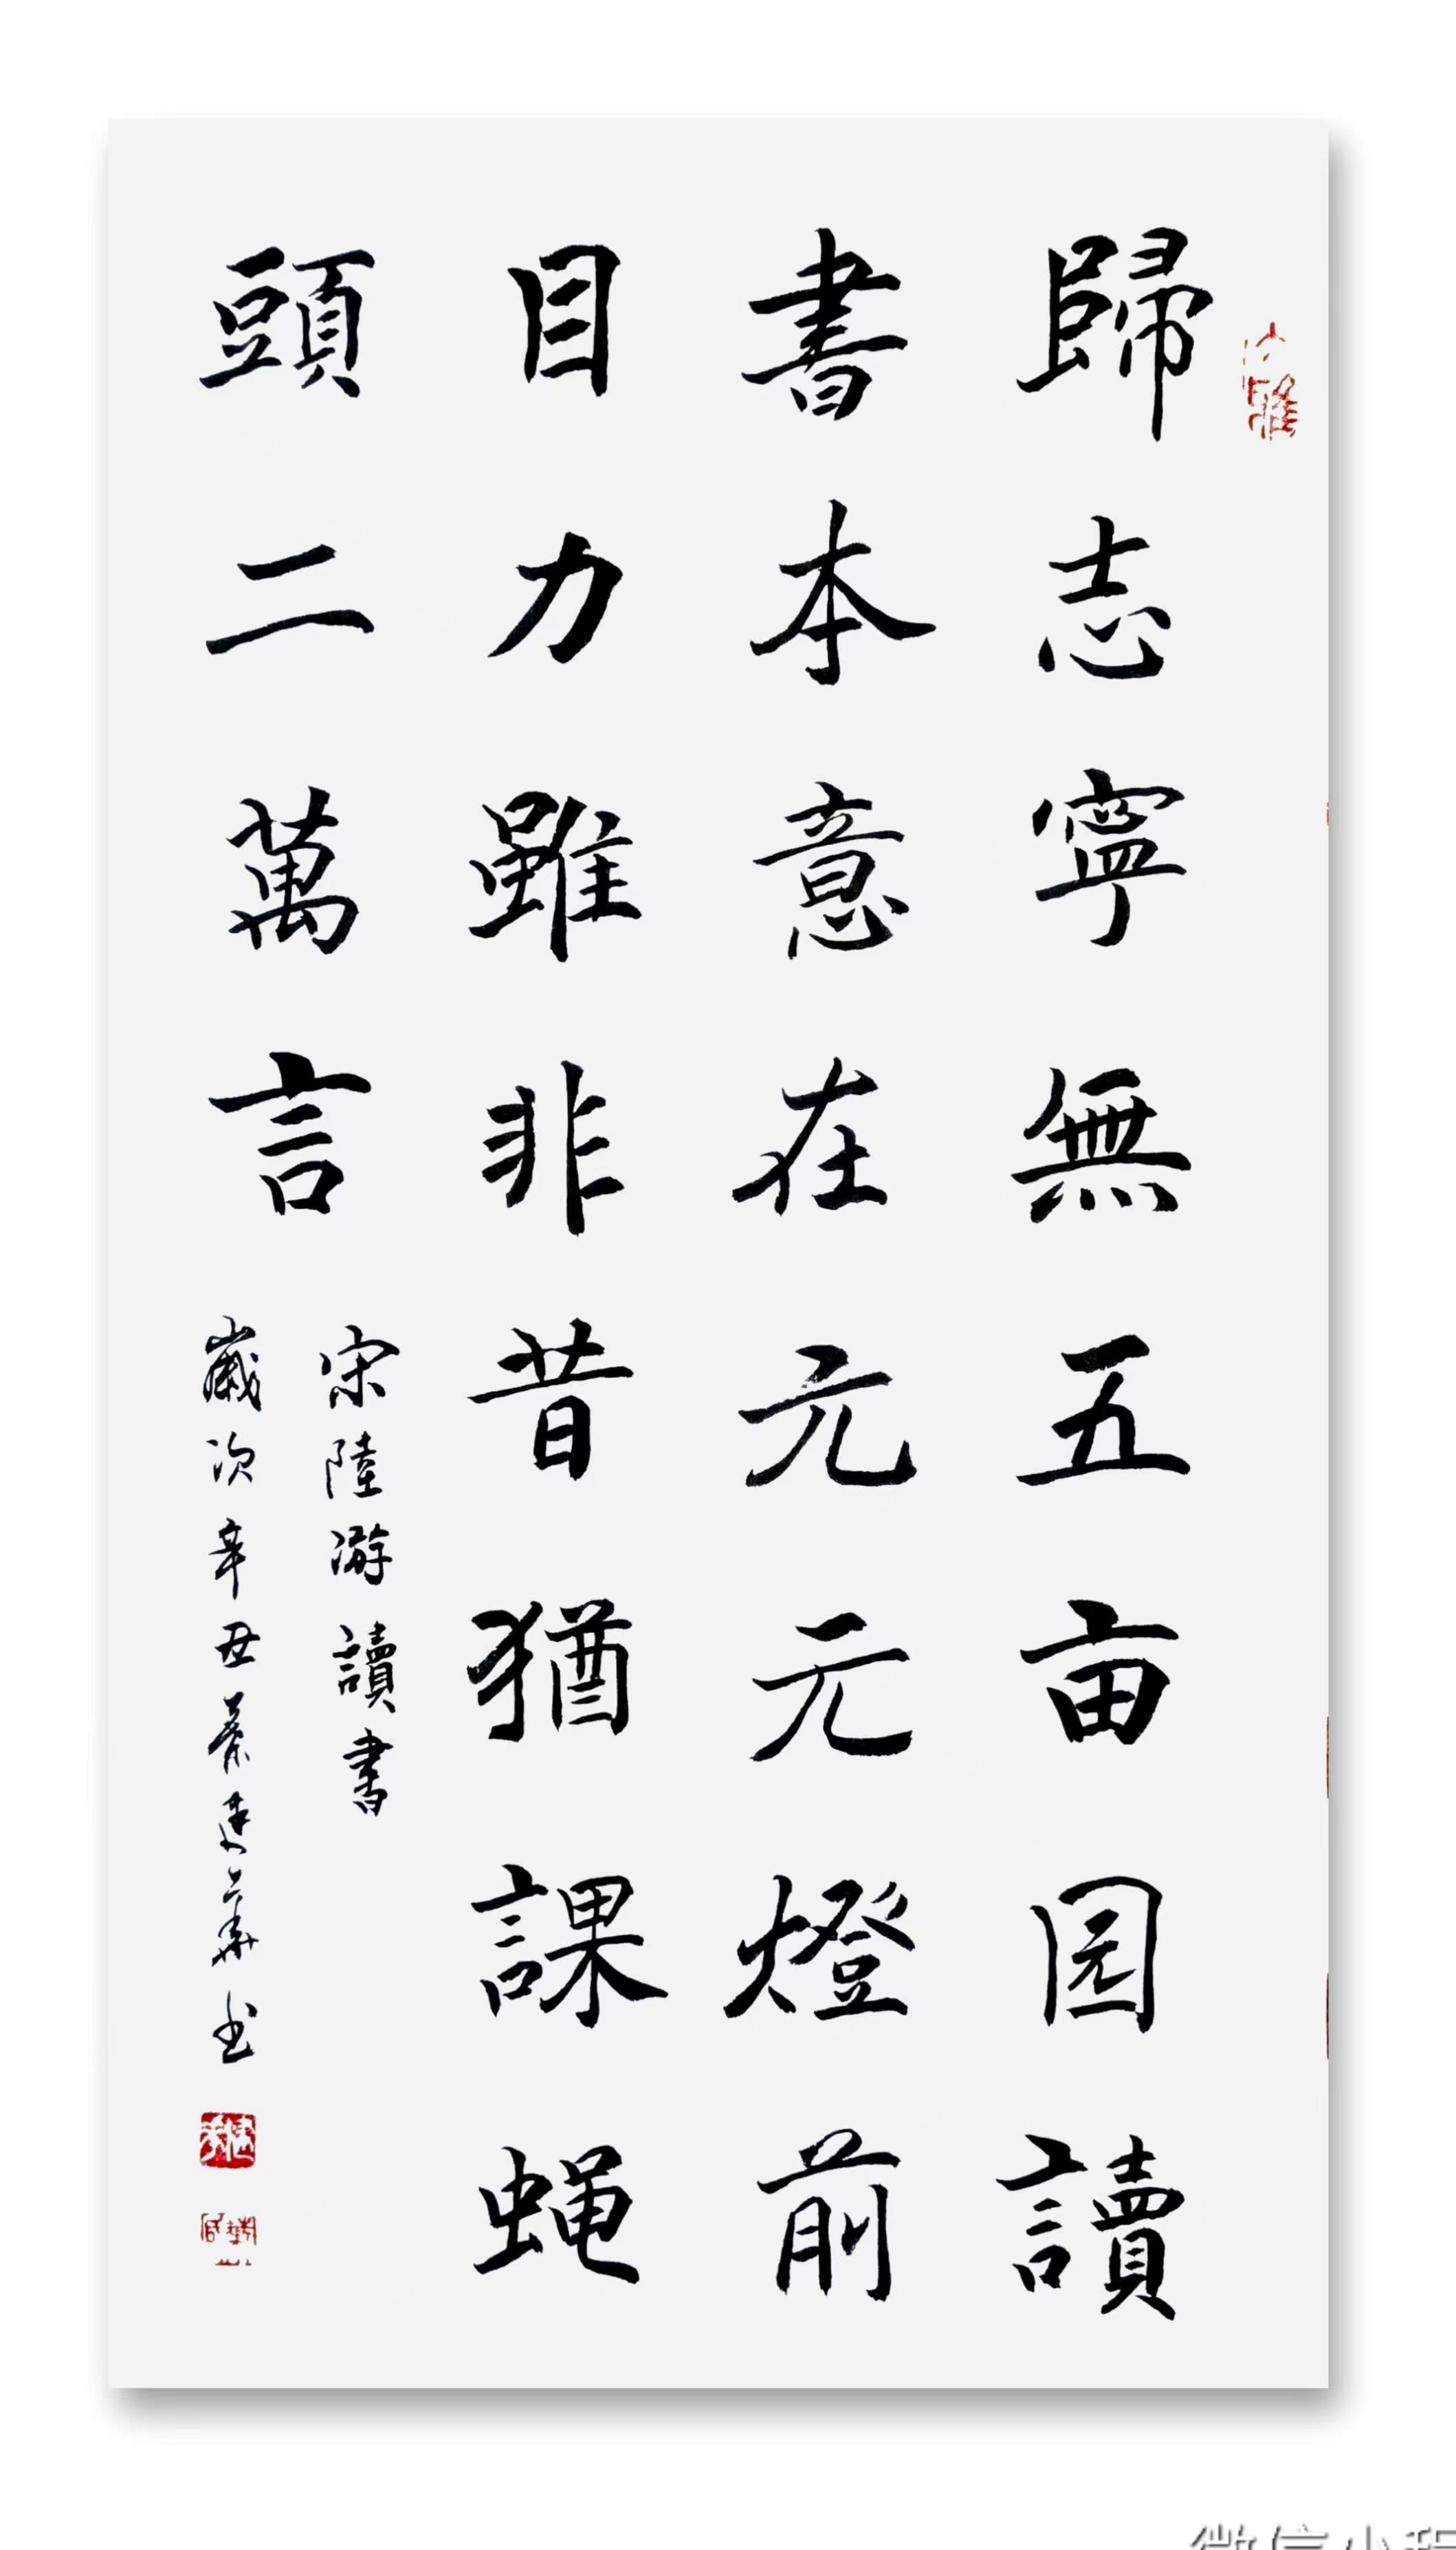 歸志寧無五亩园讀
書本意在元元燈前
目力雖非昔猶課蝇
頭二萬言
宋陸游讀書
歲次辛丑 建华书
微信小程